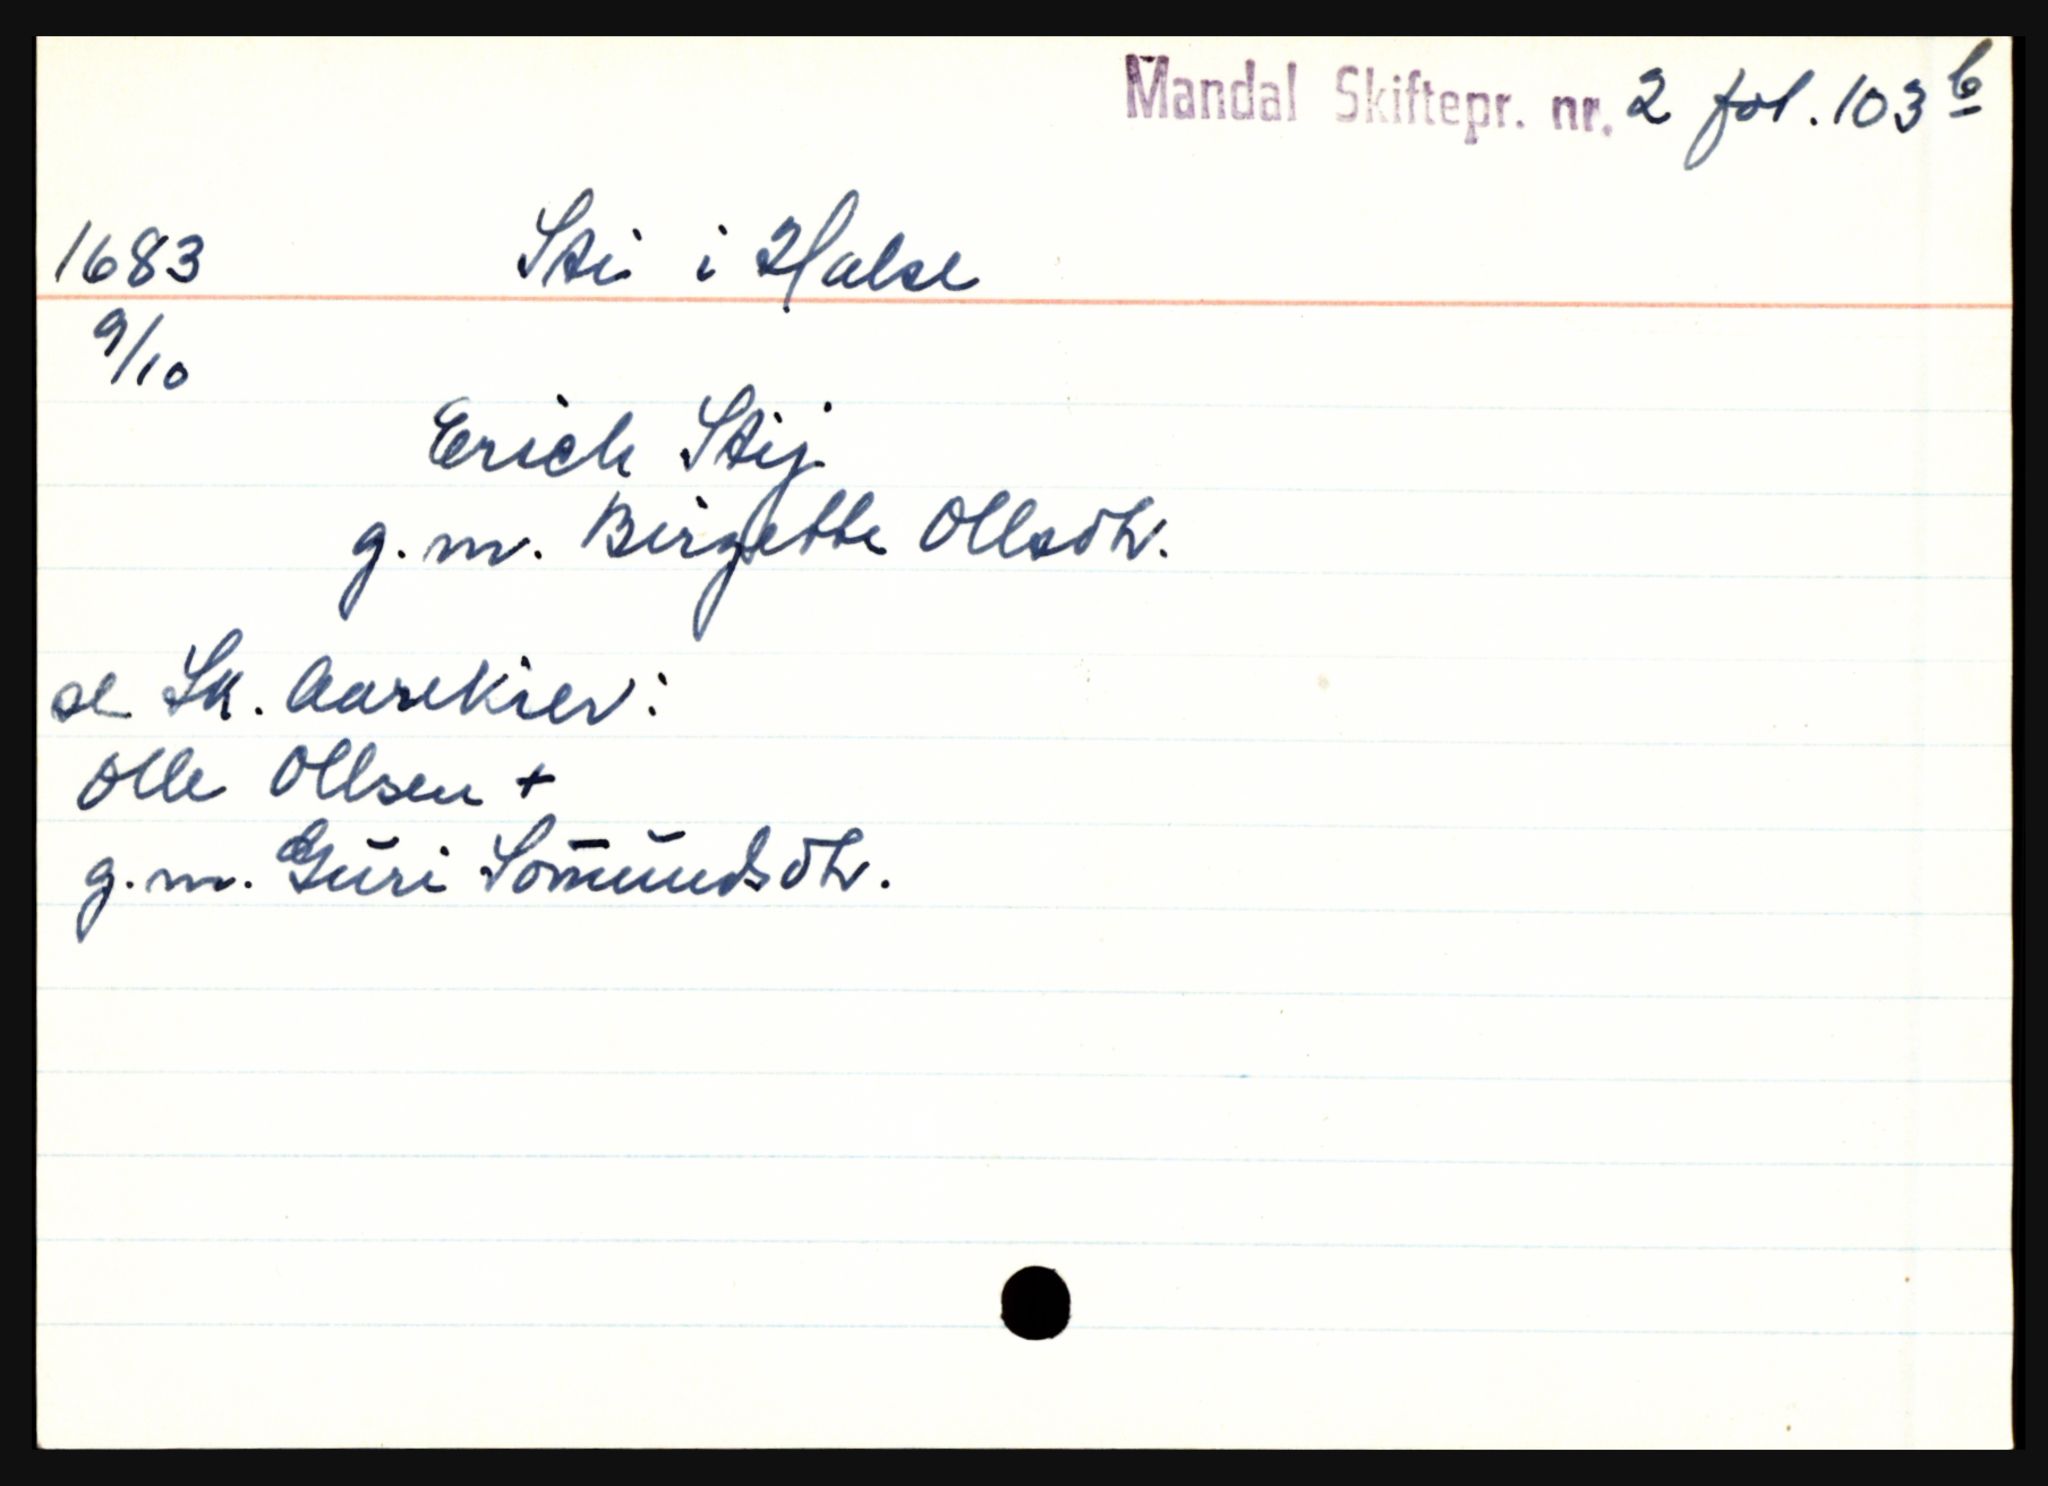 Mandal Skiftepr. nr. 2 fol. 103 b
1683 Sti i Halse
9/10
Erich Stij
g. m. Birgette Ollsdtr.
se Sk. Aarekier:
Olle Ollsen +
g. m. Guri Somundsdtr.